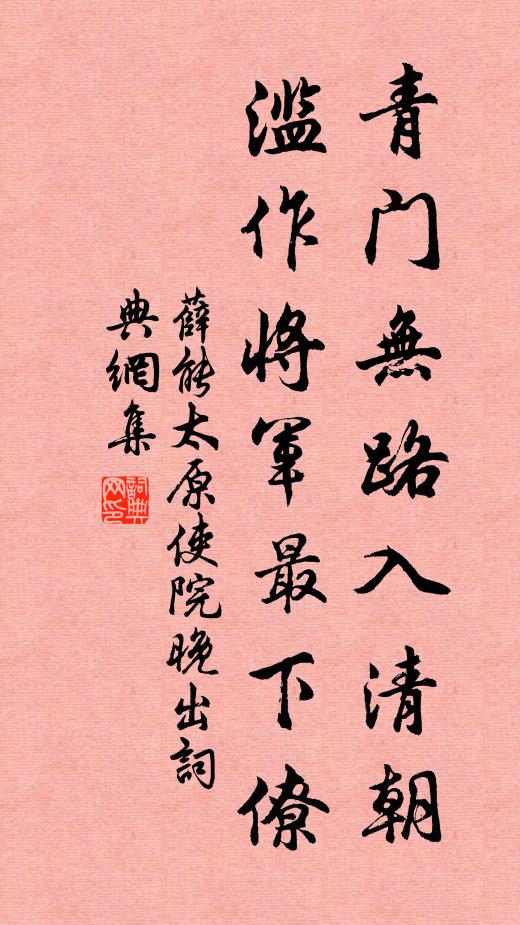 青门無路入清朝
滥作将軍最下僚
薛能太原使院晚出詞
典網集
詞典网印